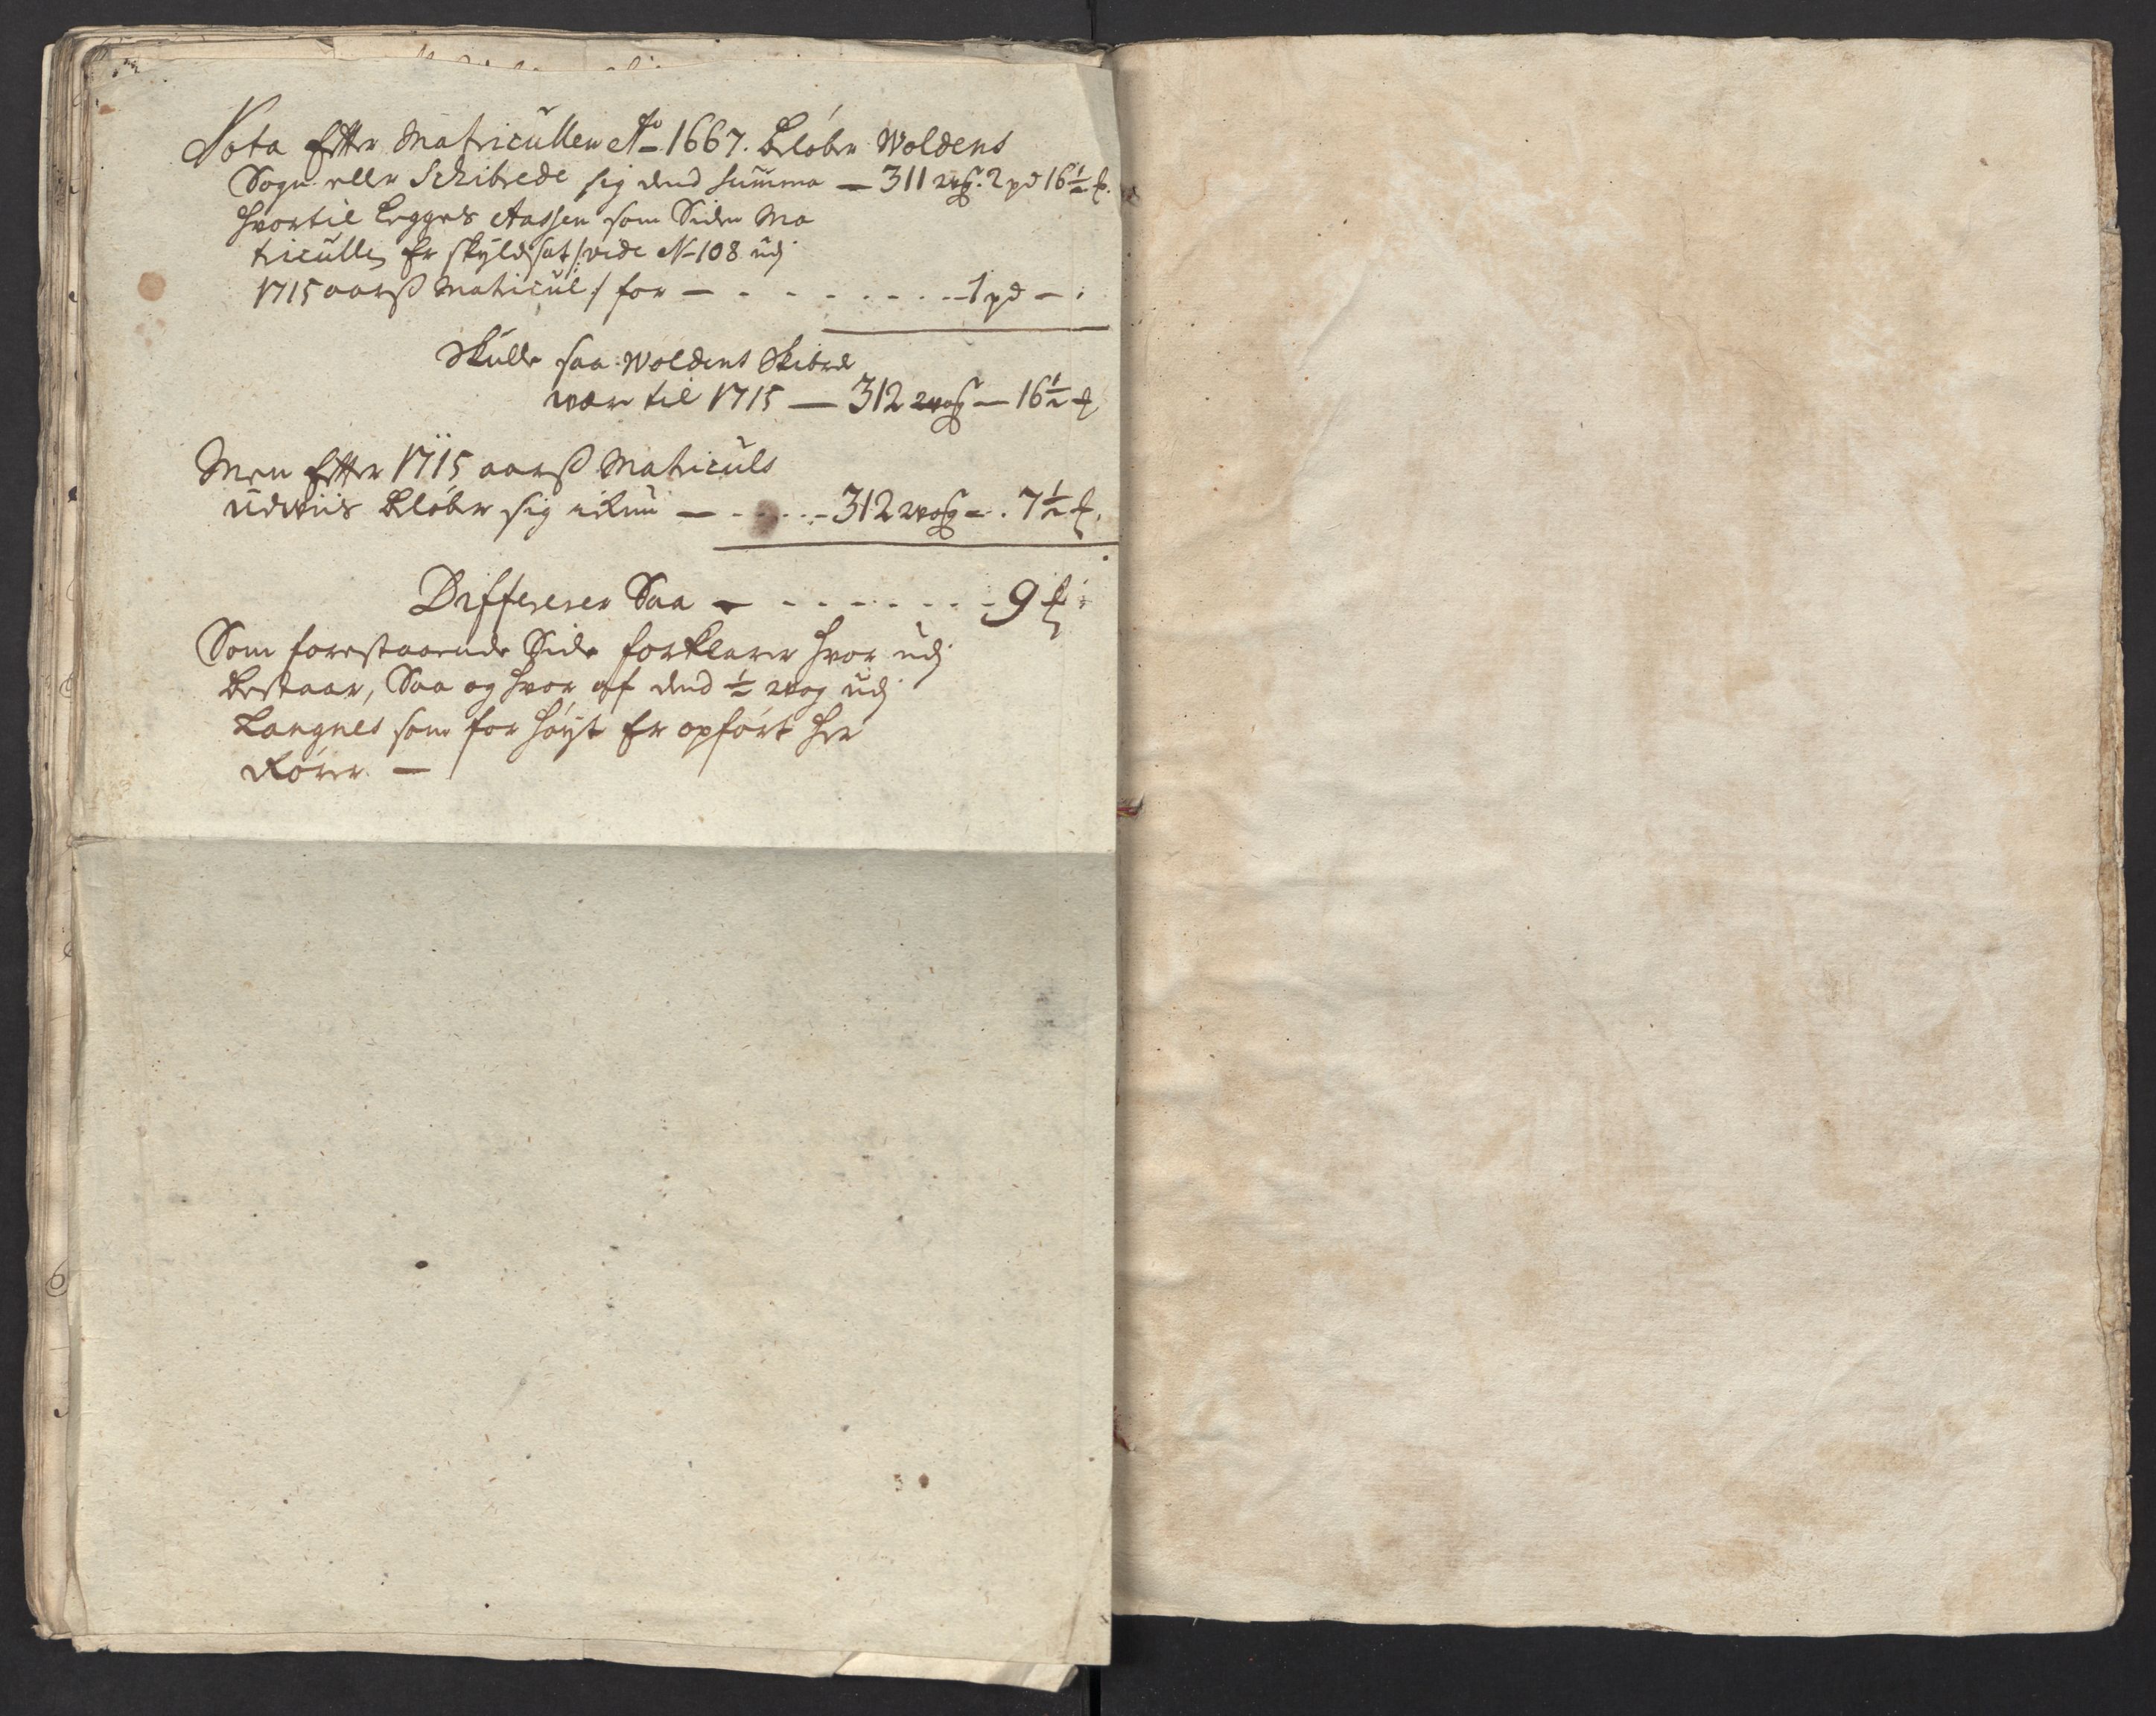 Nota Efter Matricullen Ao 1667. Beløber Woldens
Sogn eller Schibrede sig dend summa — 311 wog. 2 pd 16½ ℔.
hvortil Legges Aassen som Siden Ma
triculle Er skyldsat /: vide No 108 udj
1715 aarss Matricul :/ for — - - - - - - - 1 pd — :
Skulle saa Woldens Skibrede
være til 1715 — 312 wog — 16½ ℔
Men Efter 1715 aarss Matriculs
Udviis Beløber sig ickun — - - - - 312 wog - . 7½ ℔.
Differerer Saa — - - - - - - - 9 ℔ :
Som forestaaende Side forklarer hvor udj
bestaar, Saa og hvor af dend ½ wog udj
Langnes som for høyt Er opført her
Rører. —